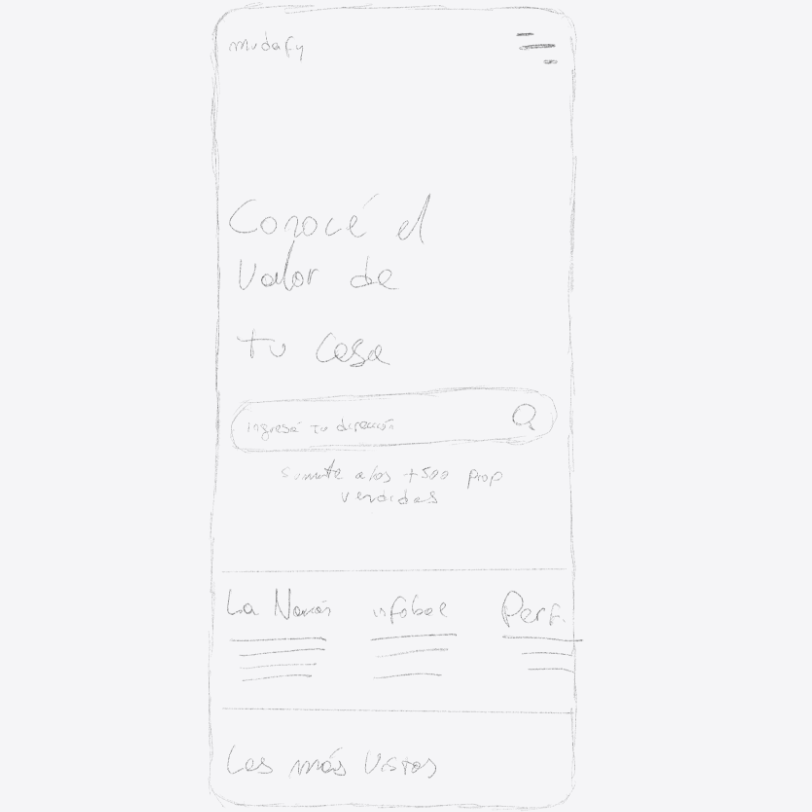 mudafy
Conocé el
valor de
tu casa
ingresá tu dirección
sumate a los +500 prop
vendidas
La Nación
infobae
Perf.
Las más vistas